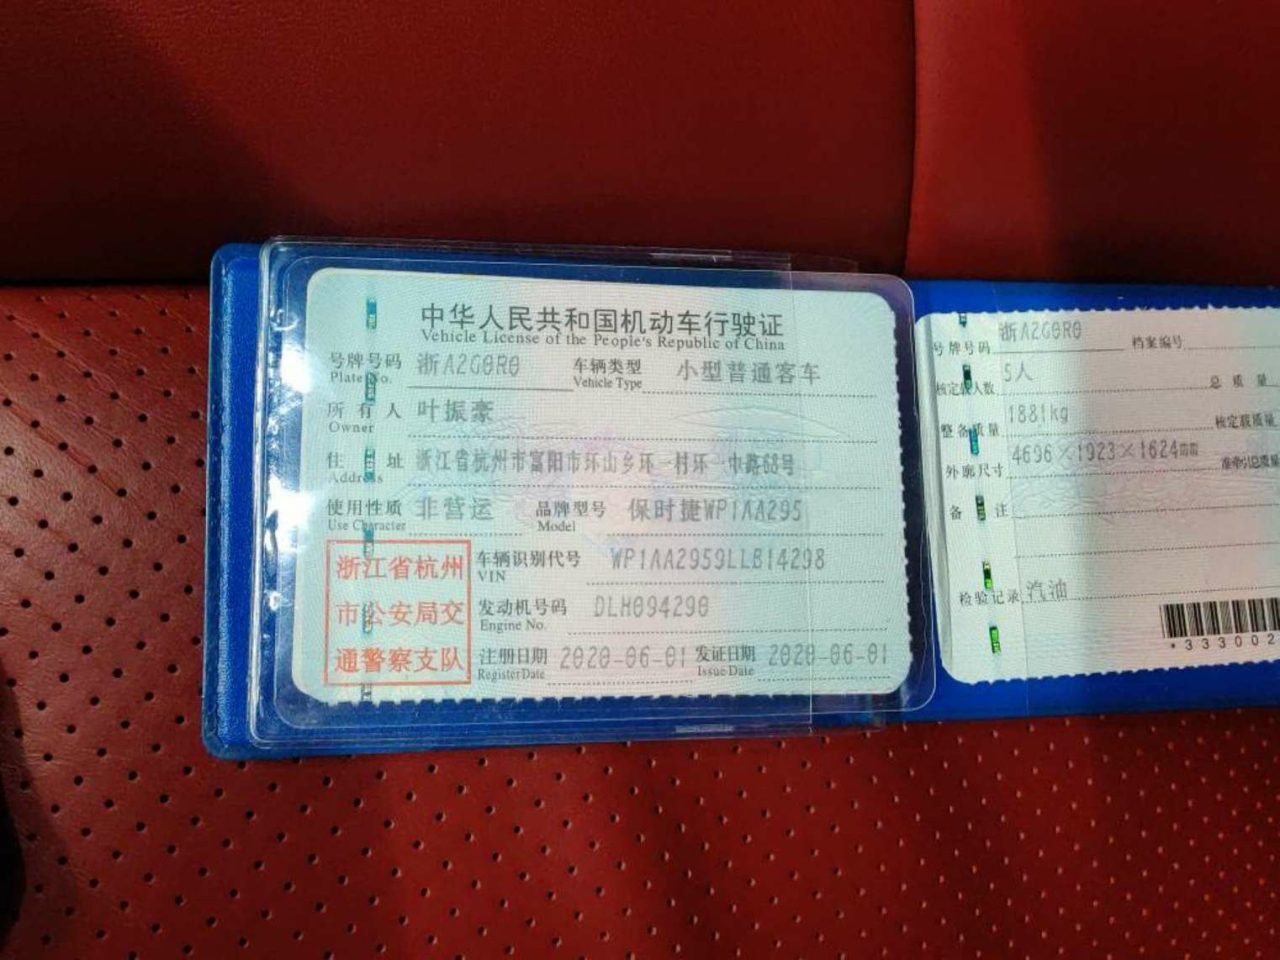 中华人民共和国机动车行驶证
Vehicle License of the People's Republic of China
号牌号码 浙A2G0R0 车辆类型 小型普通客车
Plate No. Vehicle Type
所有人 叶振豪
Owner
住址 浙江省杭州市富阳市环山乡环一村环一中路68号
Address
使用性质 非营运 品牌型号 保时捷WP1AA295
Use Character Model
浙江省杭州
市公安局交
通警察支队
车辆识别代号 WP1AA2959LLB14298
VIN
发动机号码 DLH094290
Engine No.
注册日期 2020-06-01 发证日期 2020-06-01
Register Date Issue Date
号牌号码 浙A2G0R0 档案编号
核定载人数 5人 总质量
整备质量 1881kg 核定载质量
外廓尺寸 4696×1923×1624mm 准牵引总质量
备注
检验记录 汽油
*333002